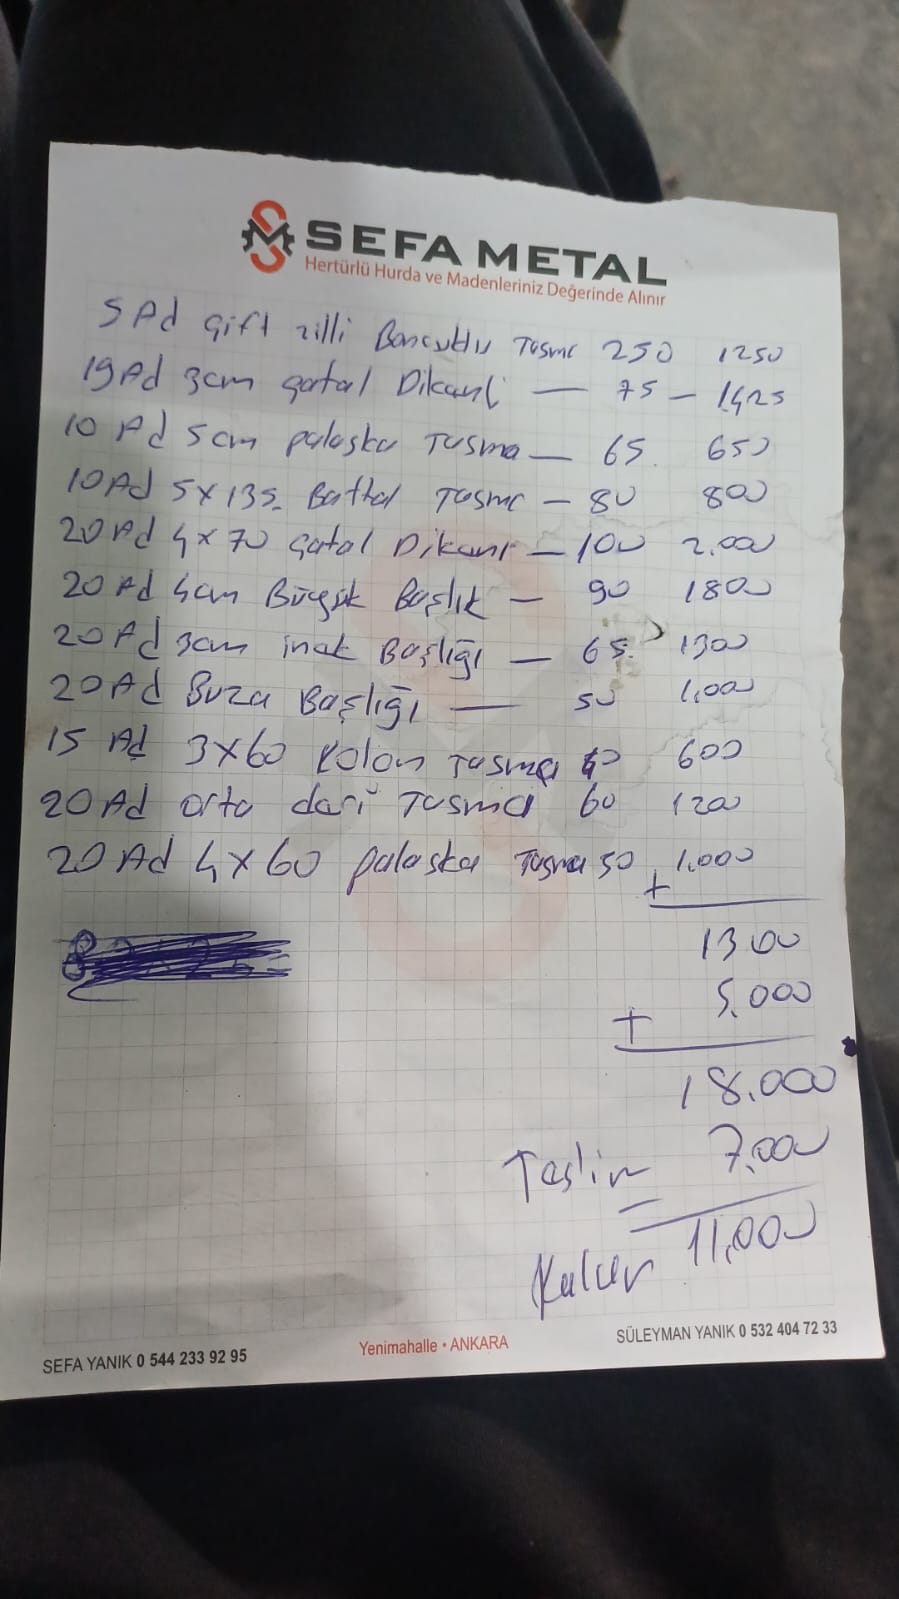 SEFA METAL
Hertürlü Hurda ve Madenleriniz Değerinde Alınır
5 Ad Çift zilli Boncuklu Tasma 250 1250
19 Ad 3cm çatal Dikanli — 75 — 1.425
10 Ad 5cm palaska Tasma — 65 650
10 Ad 5x135 Battal Tasma — 80 800
20 Ad 4x70 çatal Dikanı — 100 2.000
20 Ad 4cm Büyük Başlık — 90 1800
20 Ad 3cm inek Başlığı — 65 1300
20 Ad Buza Başlığı — 50 1.000
15 Ad 3x60 Kolon Tasma 40 600
20 Ad orta deri Tasma 60 1200
20 Ad 4x60 palaska Tasma 50 1.000
+
1300
5.000
+
18.000
Teslim 7.000
=
Kalan 11.000
SEFA YANIK 0 544 233 92 95
Yenimahalle • ANKARA
SÜLEYMAN YANIK 0 532 404 72 33